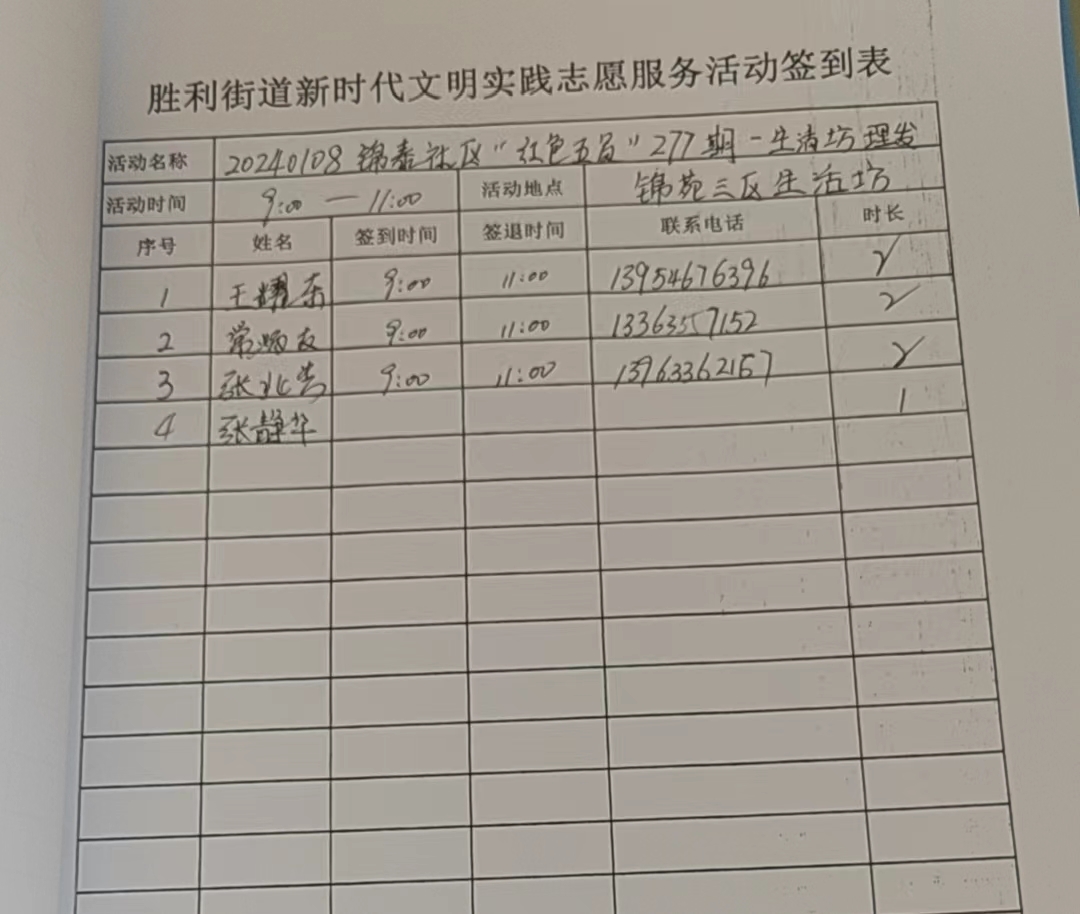 胜利街道新时代文明实践志愿服务活动签到表
活动名称 20240108 锦泰社区“红色五员”277期-生活坊 理发
活动时间 9:00 — 11:00 活动地点 锦苑三区生活坊
序号 姓名 签到时间 签退时间 联系电话 时长
1 王耀东 9:00 11:00 13954676396 2
2 常 友 9:00 11:00 13363557152 2
3 张 9:00 11:00 13963362157 2
4 张静华 1